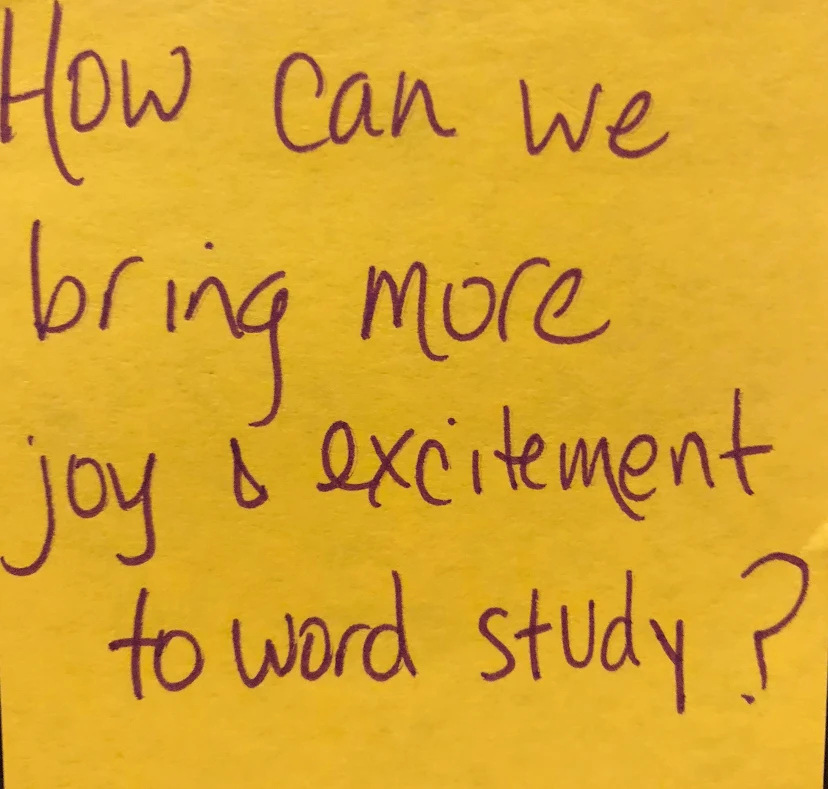 How can we
bring more
joy & excitement
to word study?